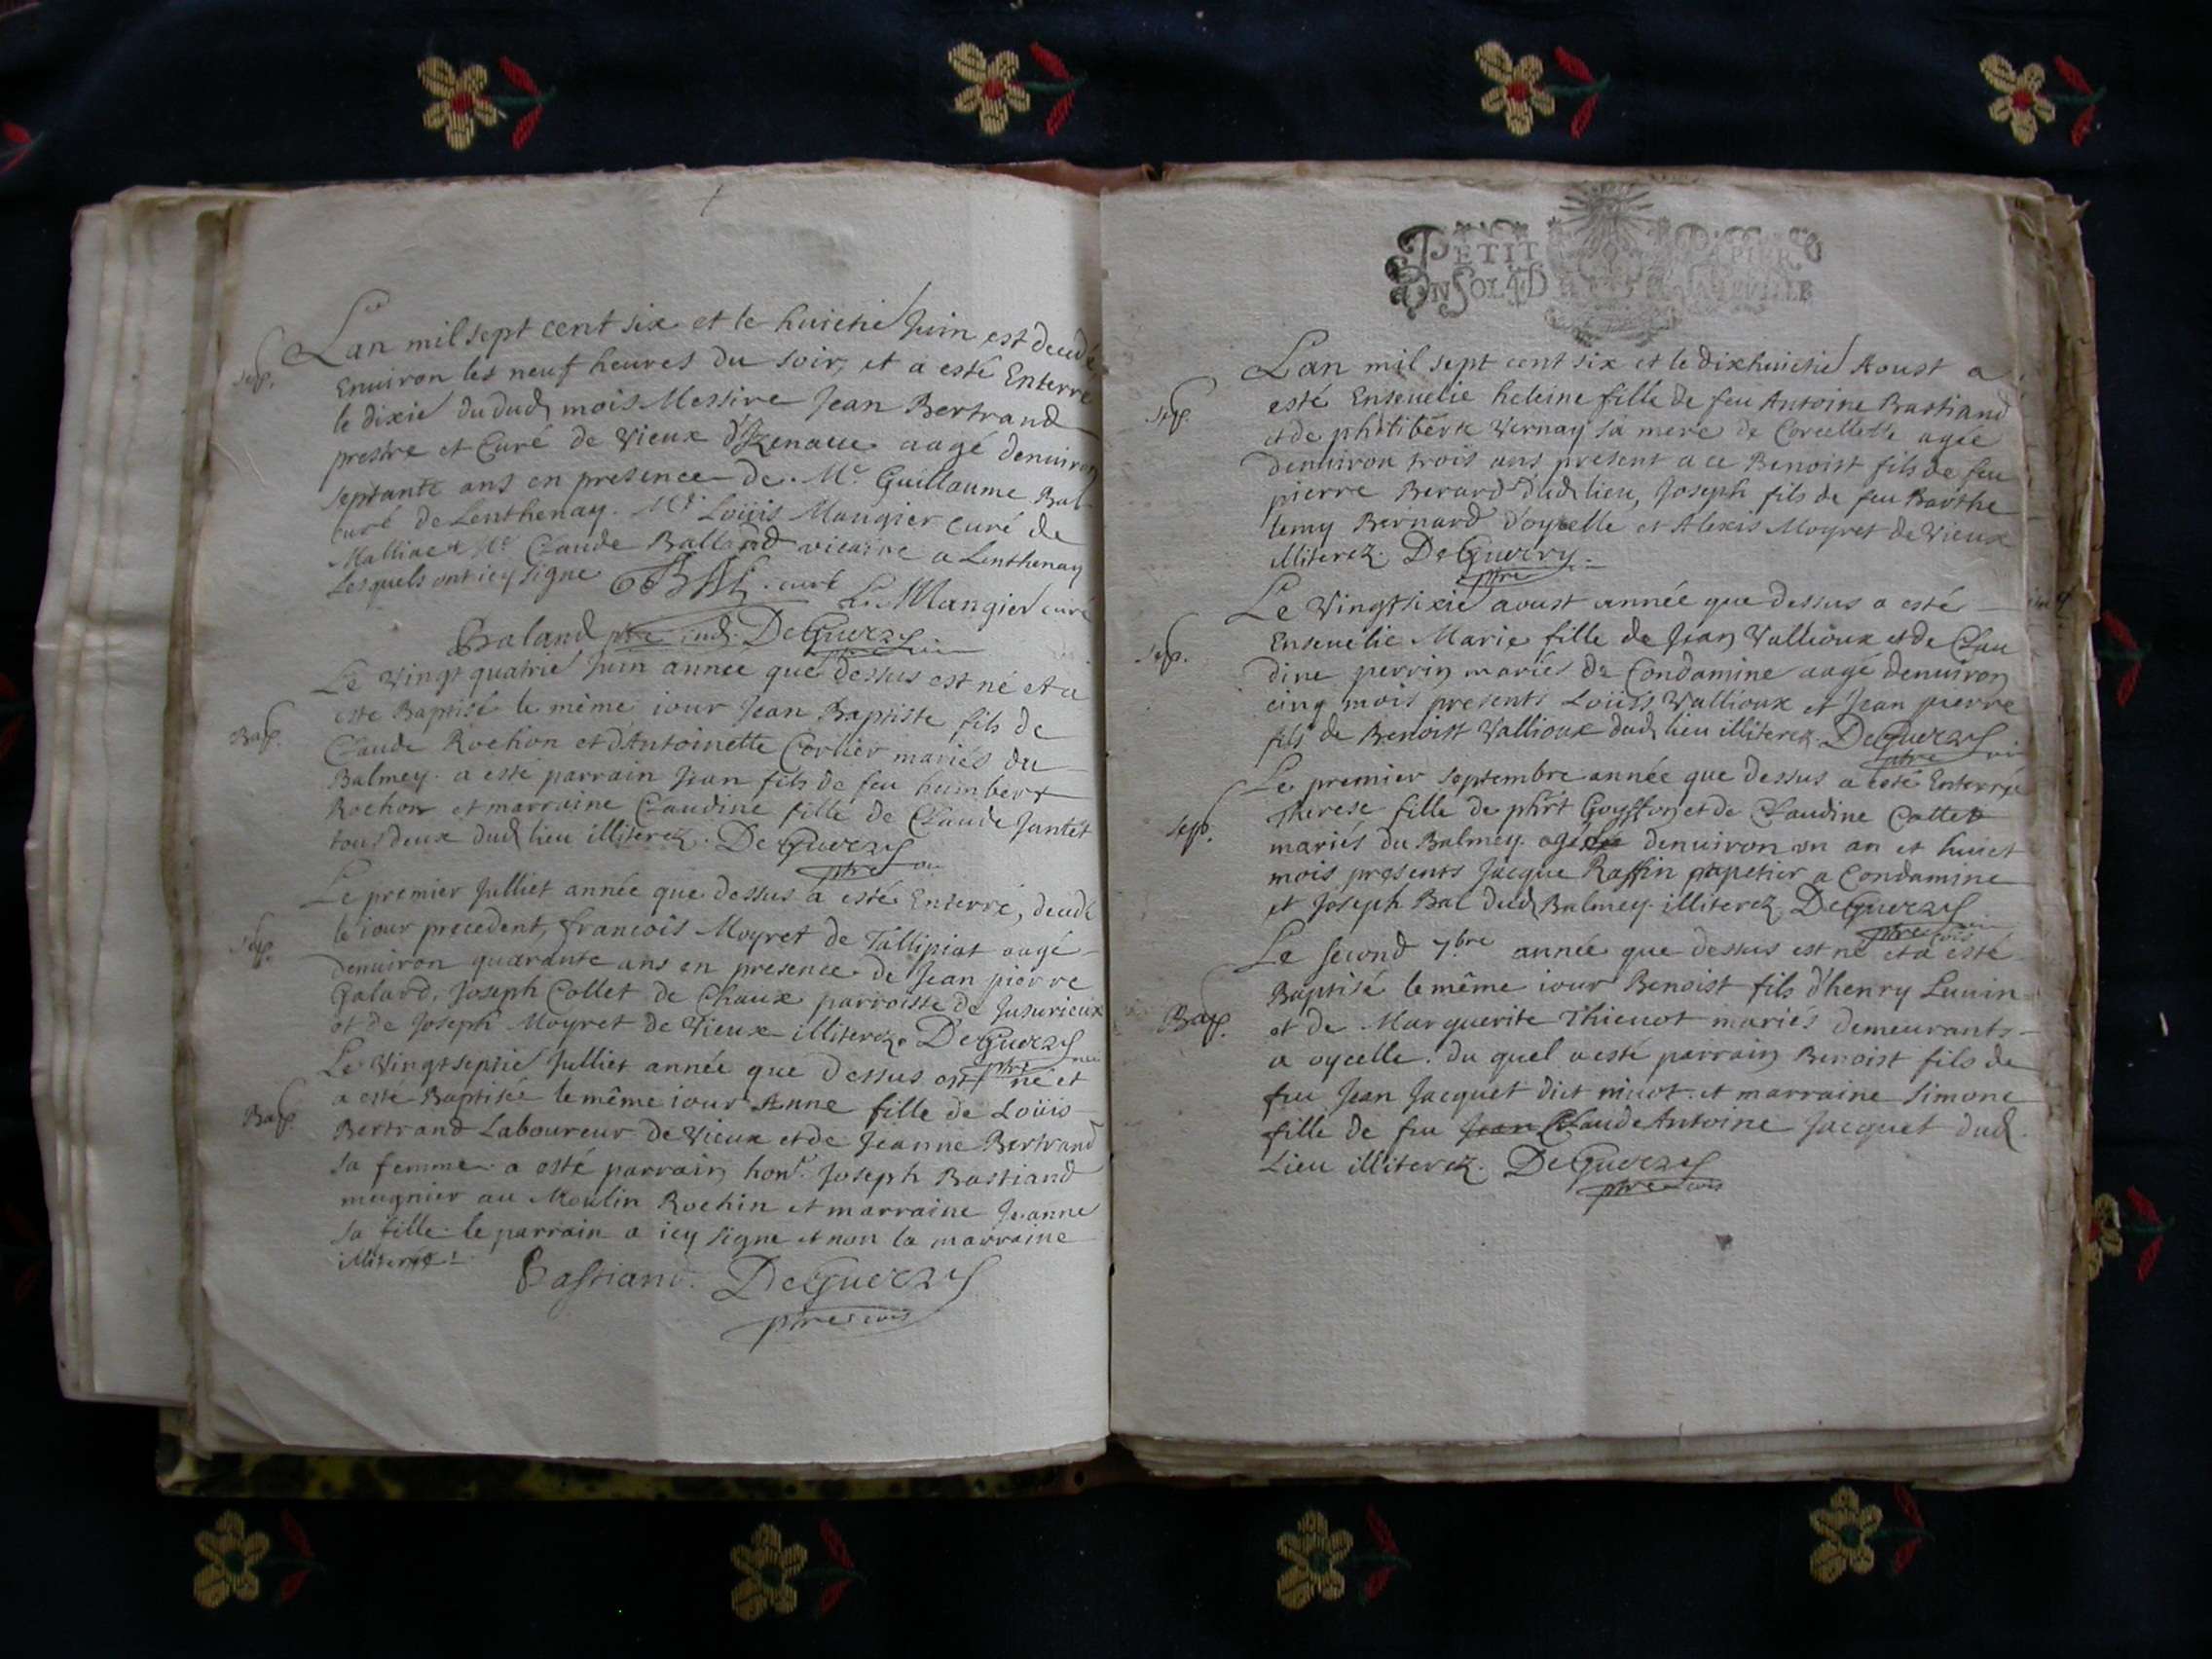 Sep.
Lan mil sept cent six et le huictie Juin est decedé
Environ les neuf heures du soir, et a esté Enterré
le dixie dudud mois Messire Jean Bertrand
prestre et Curé de Vieux d'Izenave aagé denviron
septante ans en presence de Mr Guillaume Bal
curé de Lenthenay. Mr Loüis Mangier curé de
Malliac et Mr Claude Balland vicaire a Lenthenay
lesquels ont icy signe Bal curé L. Mangier curé
Baland ptre DeGuerry
Bap.
Le Vingt quatrie Juin annee que dessus est né et a
este Baptisé le même iour Jean Baptiste fils de
Claude Rochon et d'Antoinette Corlier mariés du
Balmey. a esté parrain Jean fils de feu humbert
Rochon et marraine Claudine fille de Claude Jantet
tous deux dud lieu illiterez. DeGuerry
ptre
Sep.
Le premier Julliet année que dessus a esté Enterré, decedé
le iour precedent, francois Moyret de Tallipiat aagé
denviron quarante ans en presence de Jean pierre
Galard, Joseph Collet de Chaux parroisse de Jusurieux
et de Joseph Moyret de Vieux illiterez. DeGuerry
ptre
Bap.
Le Vingt septie Julliet année que dessus est né et
a esté Baptisée le même iour Anne fille de Loüis
Bertrand Laboureur de Vieux et de Jeanne Bertrand
sa femme. a esté parrain hont. Joseph Bastiand
mugnier au Moulin Rochin et marraine Jeanne
sa fille. le parrain a icy signe et non la marraine
illiteree.
Bastiand. DeGuerry
ptre
PETIT PAPIER
UN SOL LA FEUILLE
Sep.
Lan mil sept cent six et le dixhuictie Aoust a
esté Ensevelie heleine fille de feu Antoine Bastiand
et de philiberte Vernay sa mere de Corcellette agée
denviron trois ans present a ce Benoist fils de feu
pierre Berard dud lieu, Joseph fils de feu Barthe
lemy Bernard d'oyselle et Alexis Moyret de Vieux
illiterez. DeGuerry
ptre
Sep.
Le Vingtsixie aoust année que dessus a esté
Ensevelie Marie fille de Jean Vallioux et de Clau
dine perrin mariés de Condamine aagé denviron
cinq mois presents Loüis Vallioux et Jean pierre
fils de Benoist Vallioux dud lieu illiterez. DeGuerry
ptre
Sep.
Le premier septembre année que dessus a esté Enterrée
Therese fille de phirt Goyffon et de Claudine Collet
mariés du Balmey. agée denviron un an et huict
mois presents Jacque Raffin papetier a Condamine
et Joseph Bal dud Balmey illiterez. DeGuerry
ptre
Bap.
Le second 7.bre année que dessus est né et a esté
Baptisé le même iour Benoist fils d'henry Luvin
et de Marguerite Thienot mariés demeurants
a oyselle. du quel a esté parrain Benoist fils de
feu Jean Jacquet dict ninot. et marraine Simone
fille de feu Jean Claude Antoine Jacquet dud.
Lieu illiterez. DeGuerry
ptre